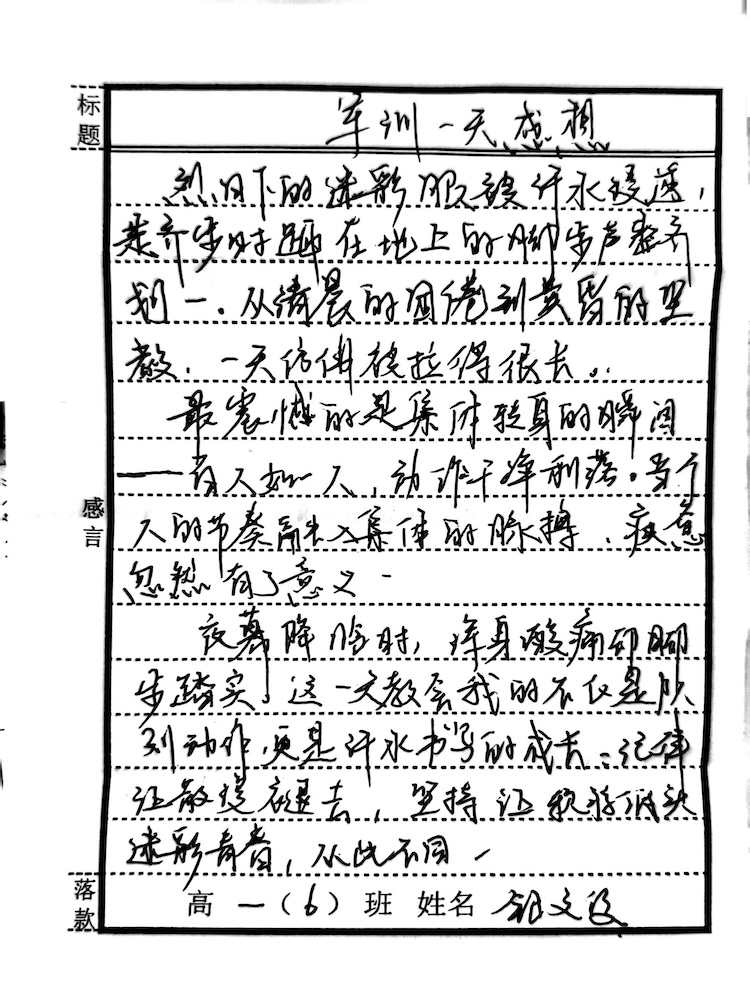 标题
军训一天感想
烈日下的迷彩服被汗水浸透,
走齐步时踏在地上的脚步声整齐
划一。从清晨的困倦到黄昏的坚
毅.一天仿佛被拉得很长。
最震憾的是集体转身的瞬间
——百人如一人,动作干净利落。当个
人的节奏融入集体的脉搏、疲惫
忽然有了意义。
夜幕降临时,浑身酸痛却脚
步踏实。这一天教会我的不仅是队
列动作,更是汗水书写的成长:纪律
让散漫褪去,坚持让软弱低头
迷彩青春,从此不同。
感言
落款
高一(6)班 姓名 文